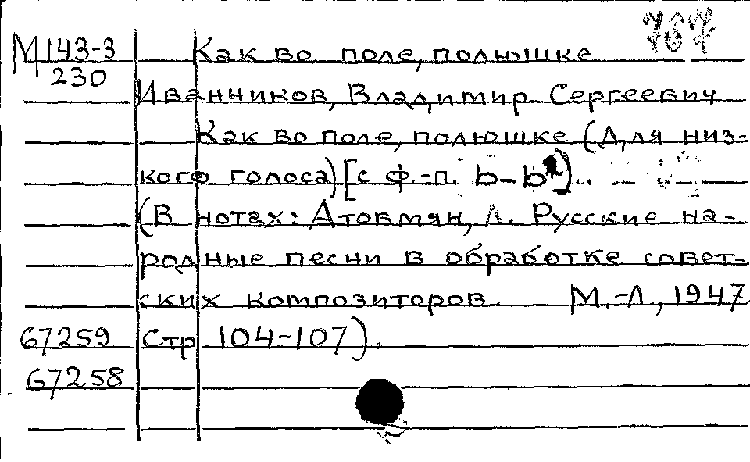 767
М143-3 Как во поле, полюшке
230
Иванников, Владимир Сергеевич
Как во поле, полюшке (Для низ-
кого голоса) [с ф.-п. b-b²)..
(В нотах: Атовмян, Л. Русские на-
родные песни в обработке совет-
ских композиторов. М.-Л., 1947
67259 Стр 104-107).
67258